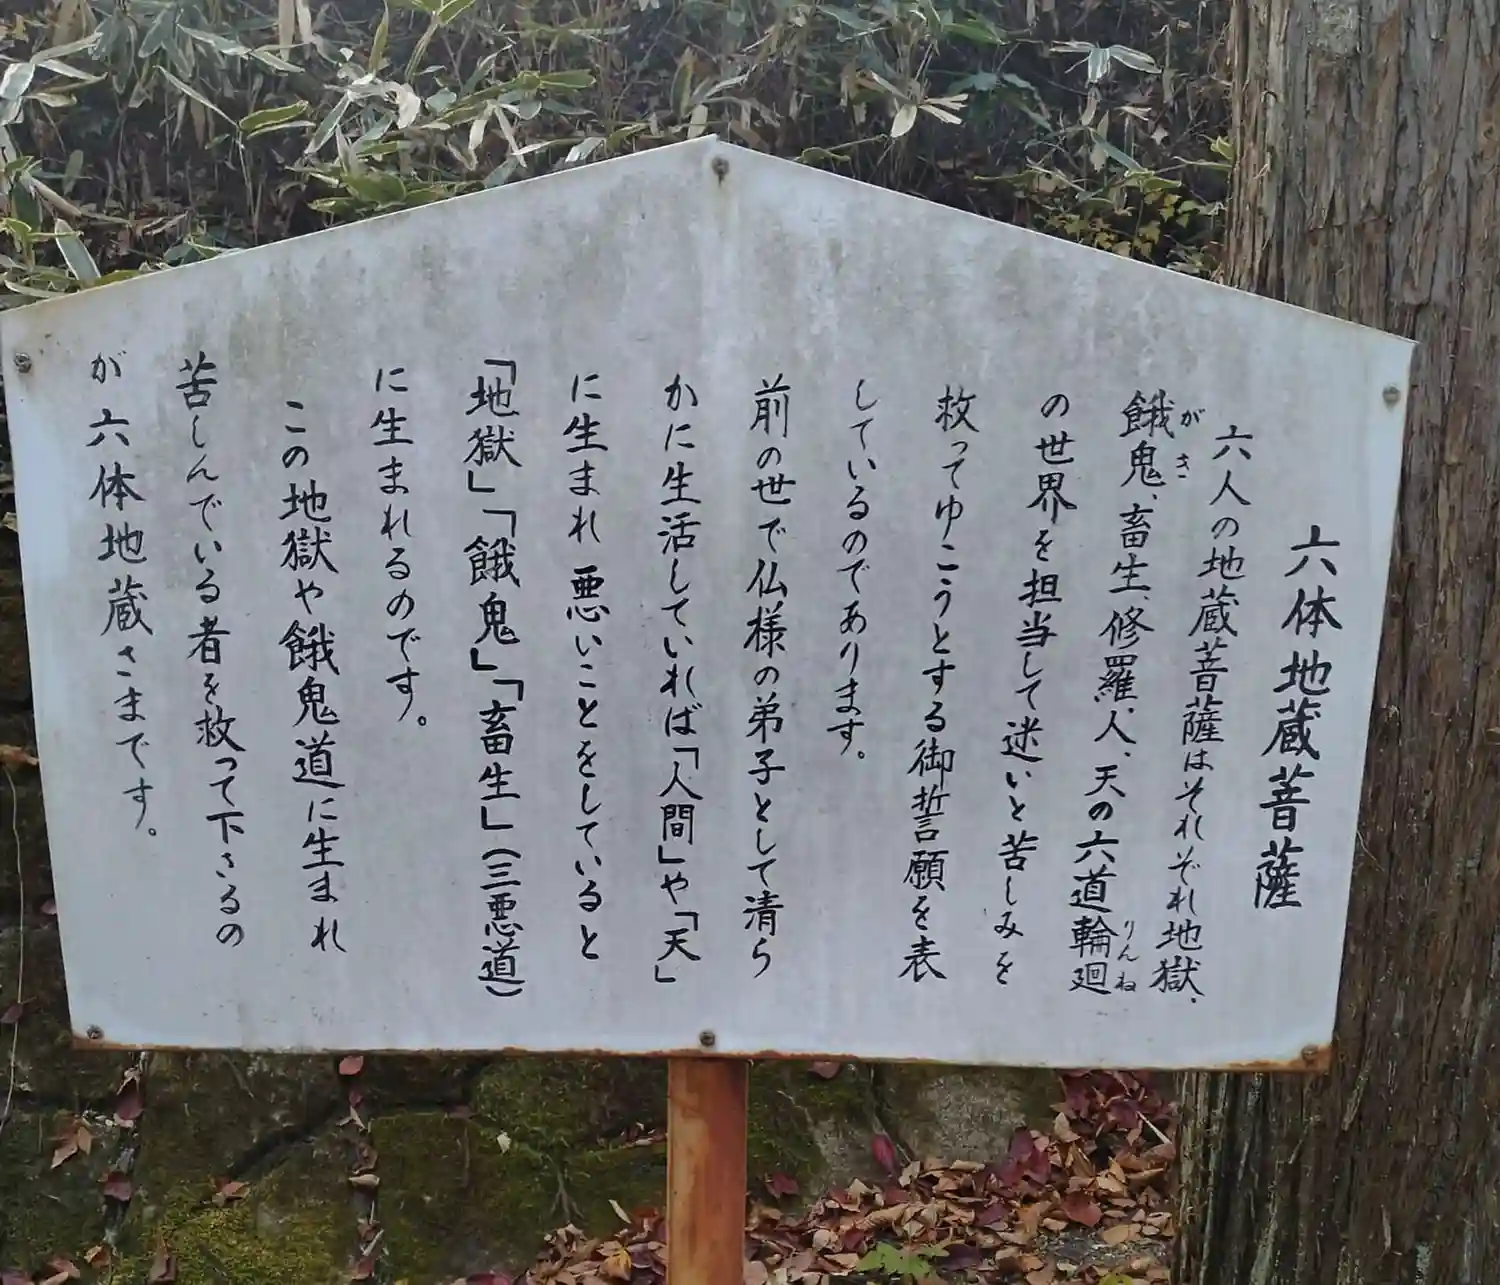 六体地蔵菩薩
六人の地蔵菩薩はそれぞれ地獄、
餓鬼、畜生、修羅、人、天の六道輪廻
がき
りんね
の世界を担当して迷いと苦しみを
救ってゆこうとする御誓願を表
しているのであります。
前の世で仏様の弟子として清ら
かに生活していれば「人間」や「天」
に生まれ 悪いことをしていると
「地獄」「餓鬼」「畜生」(三悪道)
に生まれるのです。
この地獄や餓鬼道に生まれ
苦しんでいる者を救って下さるの
が 六体地蔵さまです。